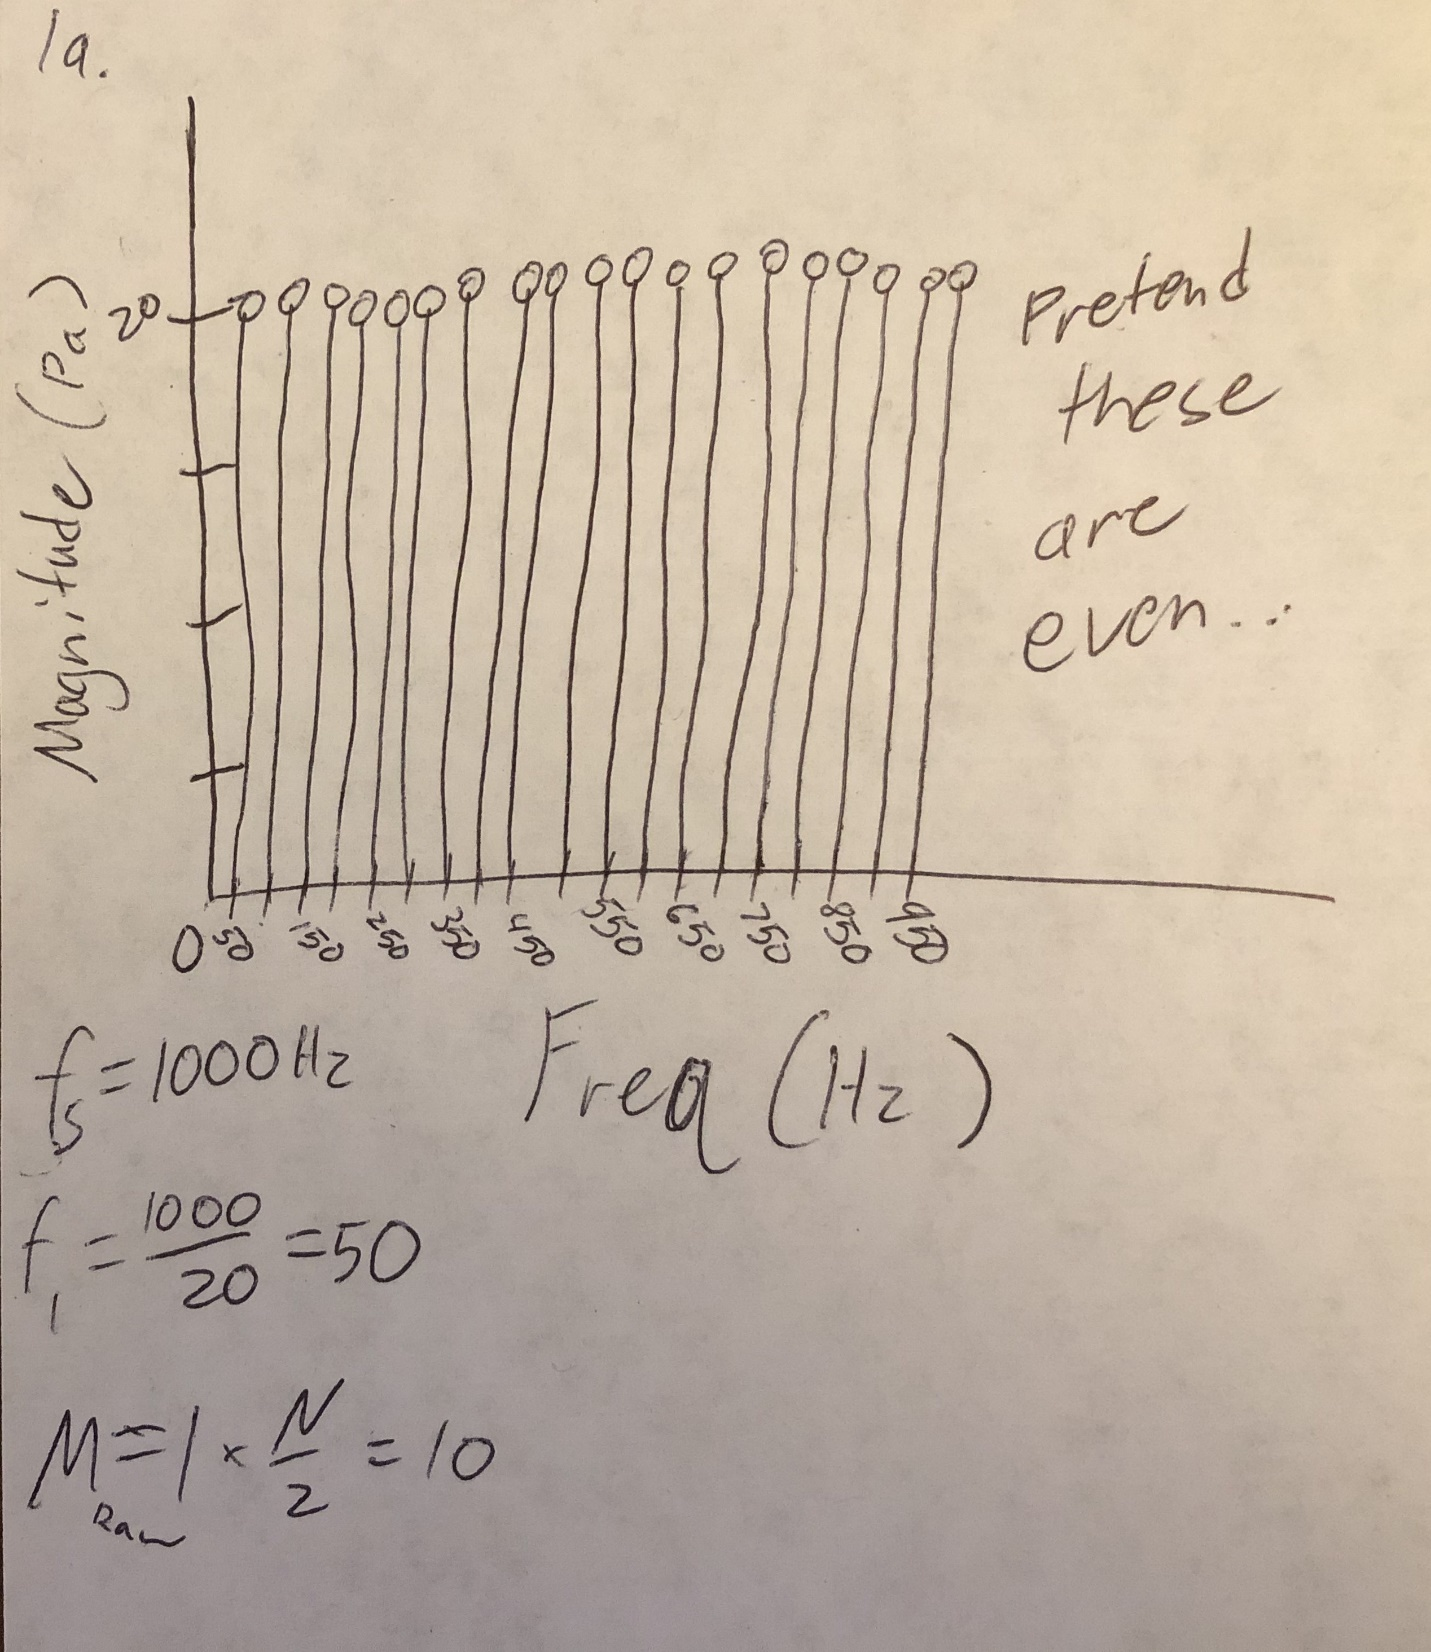 1a.
Magnitude (Pa)
20
Pretend
these
are
even...
0 50 150 250 350 450 550 650 750 850 950
Freq (Hz)
fs = 1000 Hz
f1 = 1000/20 = 50
MRaw = 1 × N/2 = 10